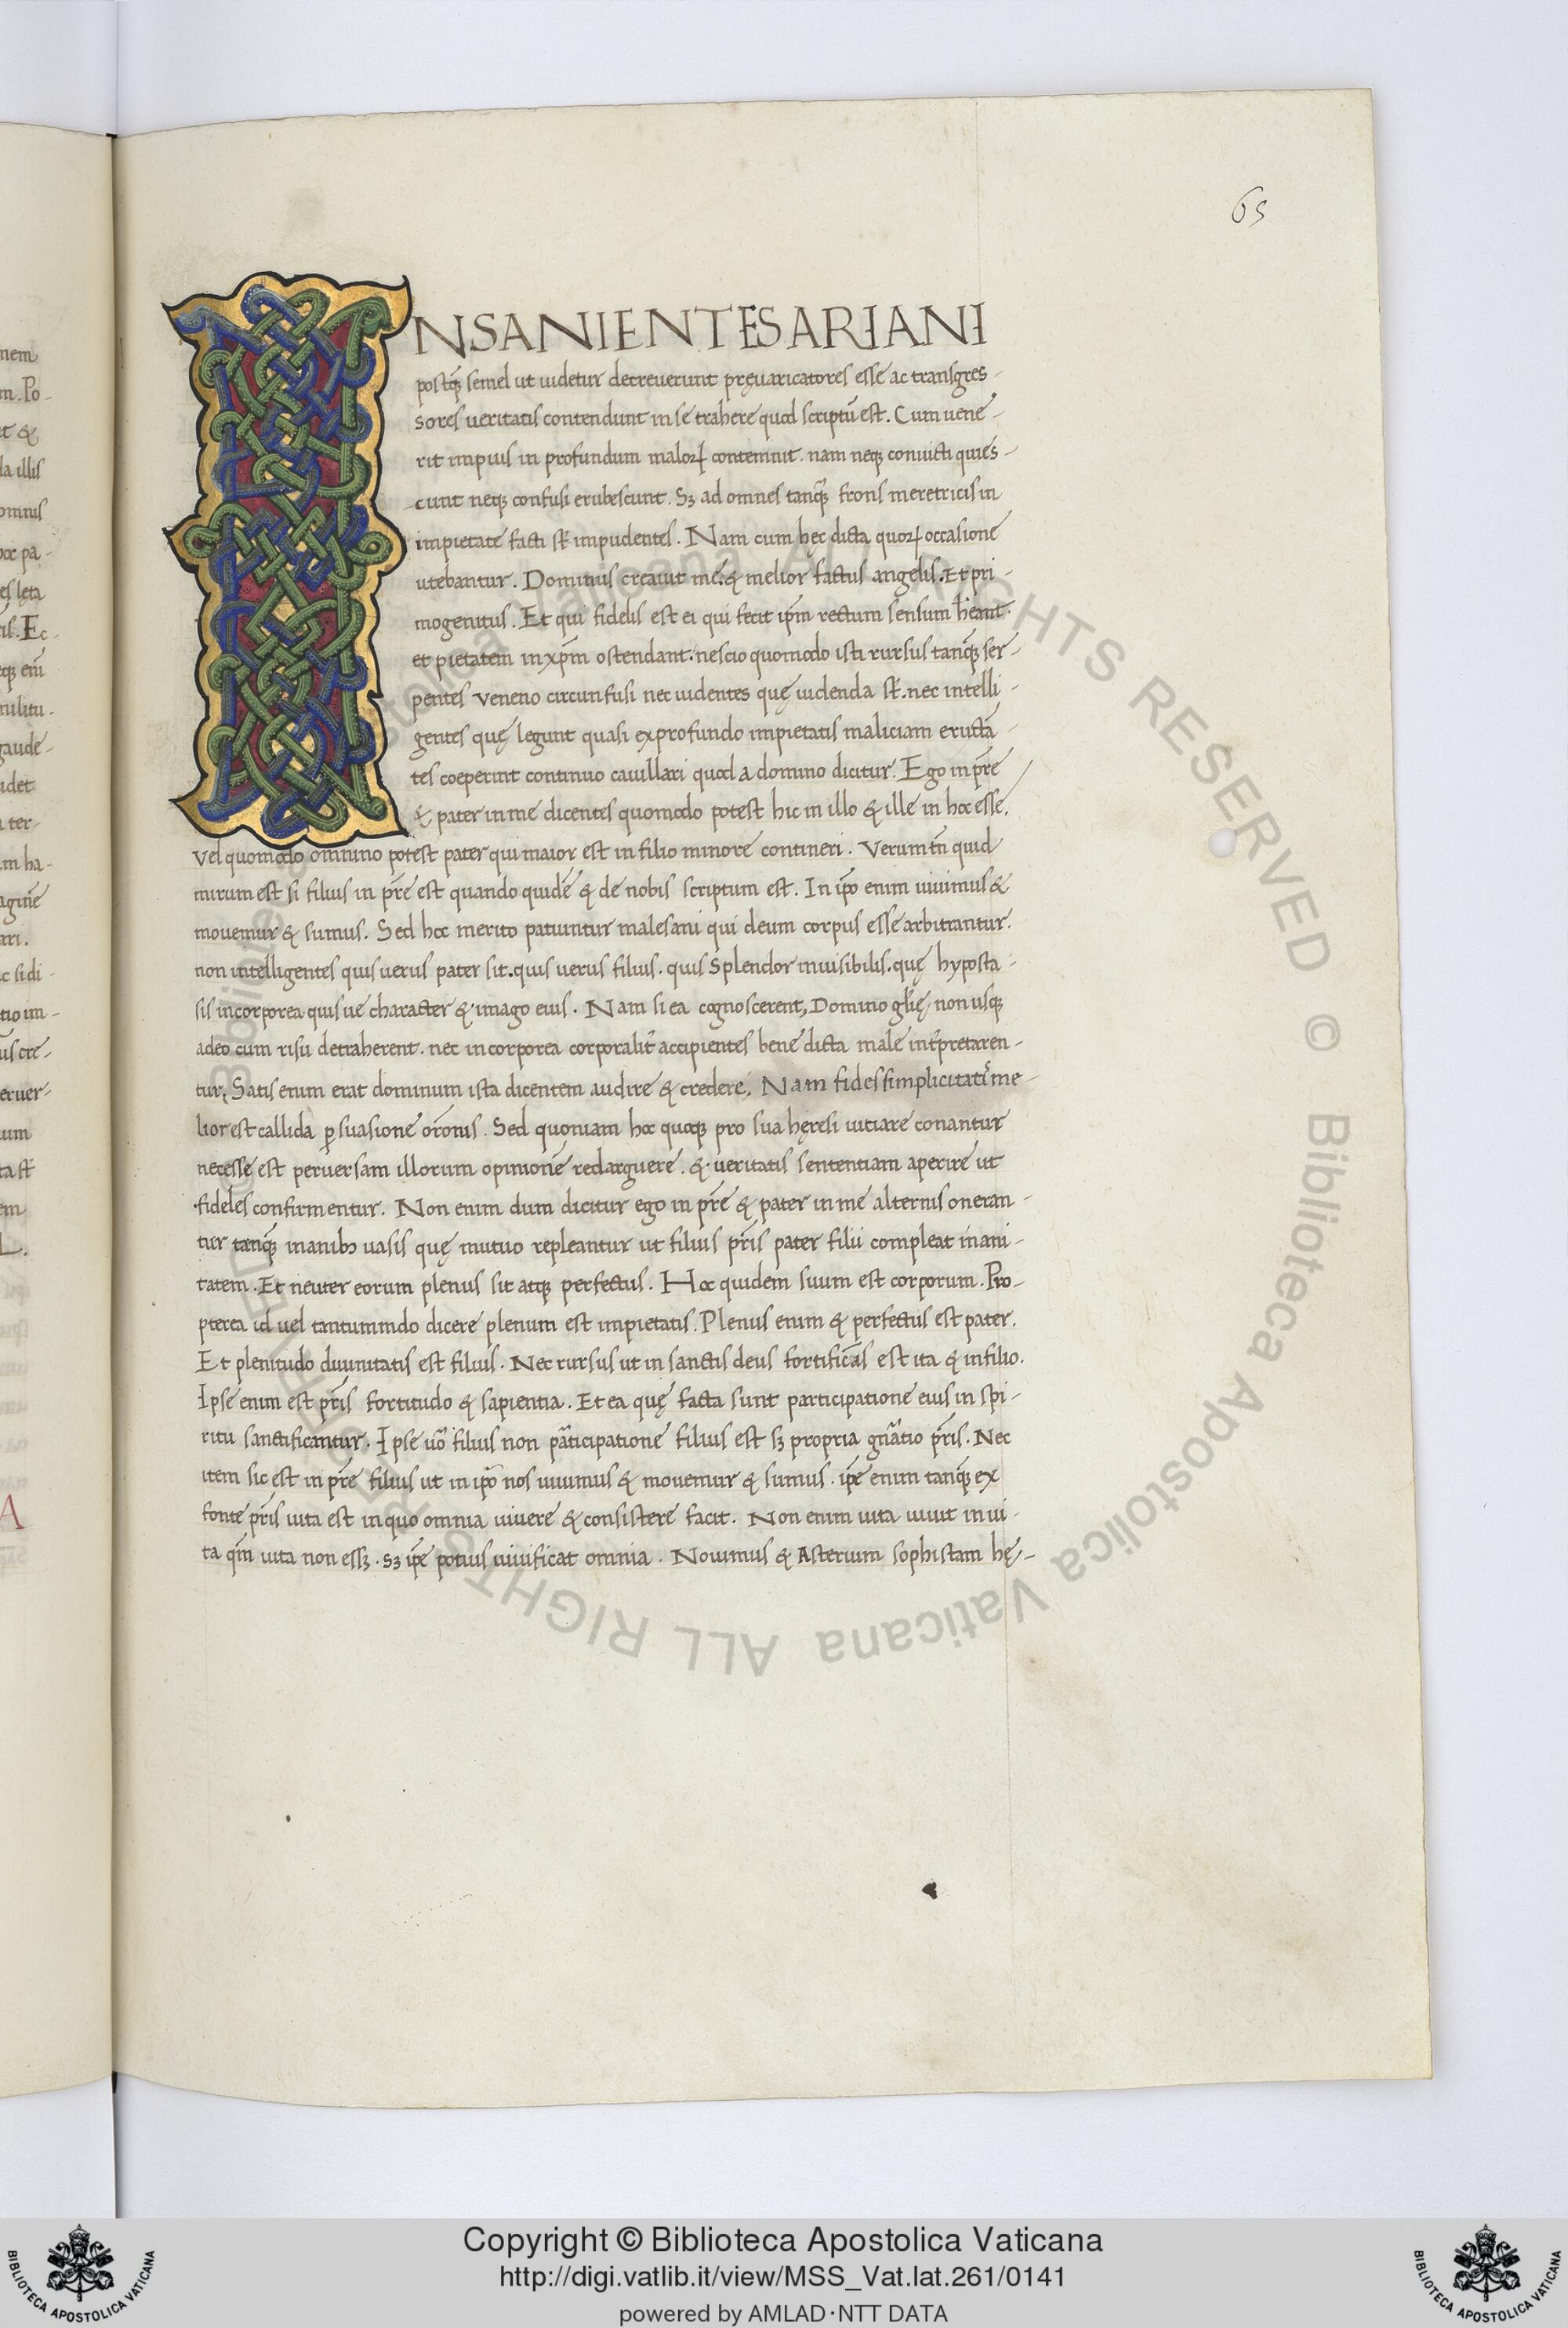 65
INSANIENTES ARIANI
postq̄ semel ut uidetur decreuerunt pręuaricatores esse ac transgres-
sores ueritatis contendunt in se trahere quod scriptū est. Cum uene-
rit impius in profundum maloꝝ contemnit. nam neqꝫ conuicti quies-
cunt neqꝫ confusi erubescunt. Sꝫ ad omnes tanq̄ frons meretricis in
impietate facti st̄ impudentes. Nam cum hęc dicta quoꝝ occasione
utebantur. Dominus creauit me. & melior factus angelis. Et pri-
mogenitus. Et qui fidelis est ei qui fecit ip̄m rectum sensum h̄eant.
et pietatem in xp̄m ostendant. nescio quomodo isti rursus tanq̄ ser-
pentes veneno circunfusi nec uidentes quę uidenda st̄. nec intelli-
gentes quę legunt quasi ex profundo impietatis maliciam eructā-
tes coeperint continuo cauillari quod a domino dicitur. Ego in pr̄e
& pater in me dicentes quomodo potest hic in illo & ille in hoc esse.
Vel quomodo omnino potest pater qui maior est in filio minore contineri. Verum tn̄ quid
mirum est si filius in pr̄e est quando quidē & de nobis scriptum est. In ip̄o enim uiuimus &
mouemur & sumus. Sed hoc merito patiuntur malesani qui deum corpus esse arbitrantur.
non intelligentes quis uerus pater sit. quis uerus filius. quis splendor inuisibilis. quę hyposta-
sis incorporea quis ue character & imago eius. Nam si ea cognoscerent, Domino gl̄ię non usqꝫ
adeo cum risu detraherent. nec incorporea corporalit̄ accipientes bene dicta male int̄pretaren-
tur, Satis enim erat dominum ista dicentem audire & credere, Nam fides simplicitatis me-
lior est callida ꝑsuasione or̄onis. Sed quoniam hoc quoqꝫ pro sua hęresi uitiare conantur
necesse est peruersam illorum opinionē redarguere. & ueritatis sententiam aperire ut
fideles confirmentur. Non enim dum dicitur ego in pr̄e & pater in me alternis oneran-
tur tanq̄ inanibꝫ uasis quę mutuo repleantur ut filius pr̄is pater filii compleat inani-
tatem. Et neuter eorum plenus sit atqꝫ perfectus. Hoc quidem suum est corporum. Pro-
pterea id uel tantummdo dicere plenum est impietatis. Plenus enim & perfectus est pater.
Et plenitudo diuinitatis est filius. Nec rursus ut in sanctis deus fortificās est ita & in filio.
Ipse enim est pr̄is fortitudo & sapientia. Et ea quę facta sunt participatione eius in spi-
ritu sanctificantur. Ipse uo᷑ filius non pāticipatione filius est sꝫ propria gn̄atio pr̄is. Nec
item sic est in pr̄e filius ut in ip̄o nos uiuimus & mouemur & sumus. ip̄e enim tanq̄ ex
fonte pr̄is uita est in quo omnia uiuere & consistere facit. Non enim uita uiuit in ui-
ta qm̄ uita non essꝫ. sꝫ ip̄e potius uiuificat omnia. Nouimus & Asterium sophistam hę-
Copyright © Biblioteca Apostolica Vaticana
http://digi.vatlib.it/view/MSS_Vat.lat.261/0141
powered by AMLAD·NTT DATA